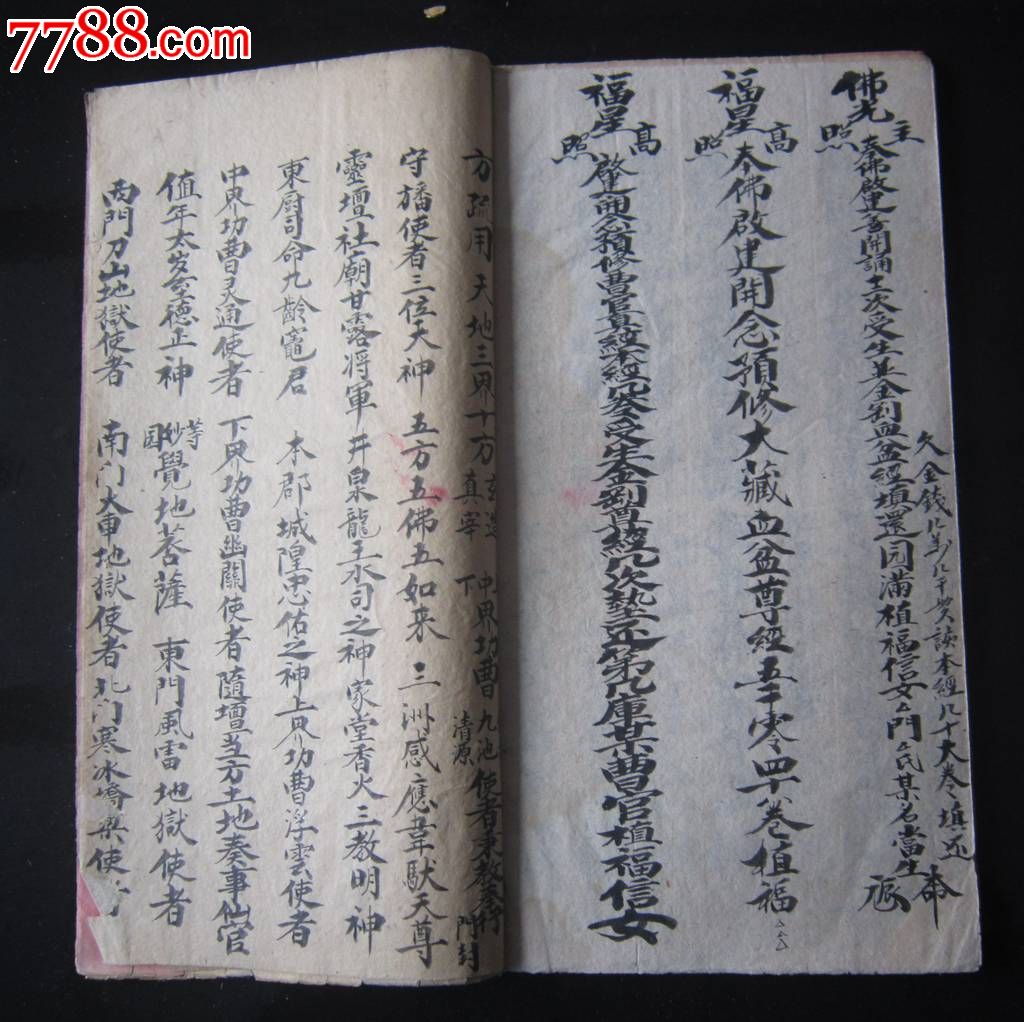 7788.com
佛光主照奉佛啟建 開誦 次受生 金剛血盆經填還园滿植福信女 門 氏某名當生 
欠金錢 讀本經几十大卷填还
福星高照奉佛啟建開念預修大藏血盆尊經五千零四十八卷植福
福星高照啟建開念預修 受生金剛尊經几次 还第几庫某曹官植福信女
方疏用天地三界十方真宰 中下界功曹九池清源使者 門封
守旛使者三位天神 五方五佛五如来 三洲感應韋馱天尊
靈壇社廟甘露将軍 井泉龍王水司之神 家堂香火三教明神
東廚司命九齡竈君 本郡城隍忠佑之神 上界功曹浮雲使者
中界功曹灵通使者 下界功曹幽關使者 隨壇当方土地奏事仙官
值年太岁至德正神 等妙园覺地菩薩 東門風雷地獄使者
西門刀山地獄使者 南門 地獄使者 北门寒冰 使